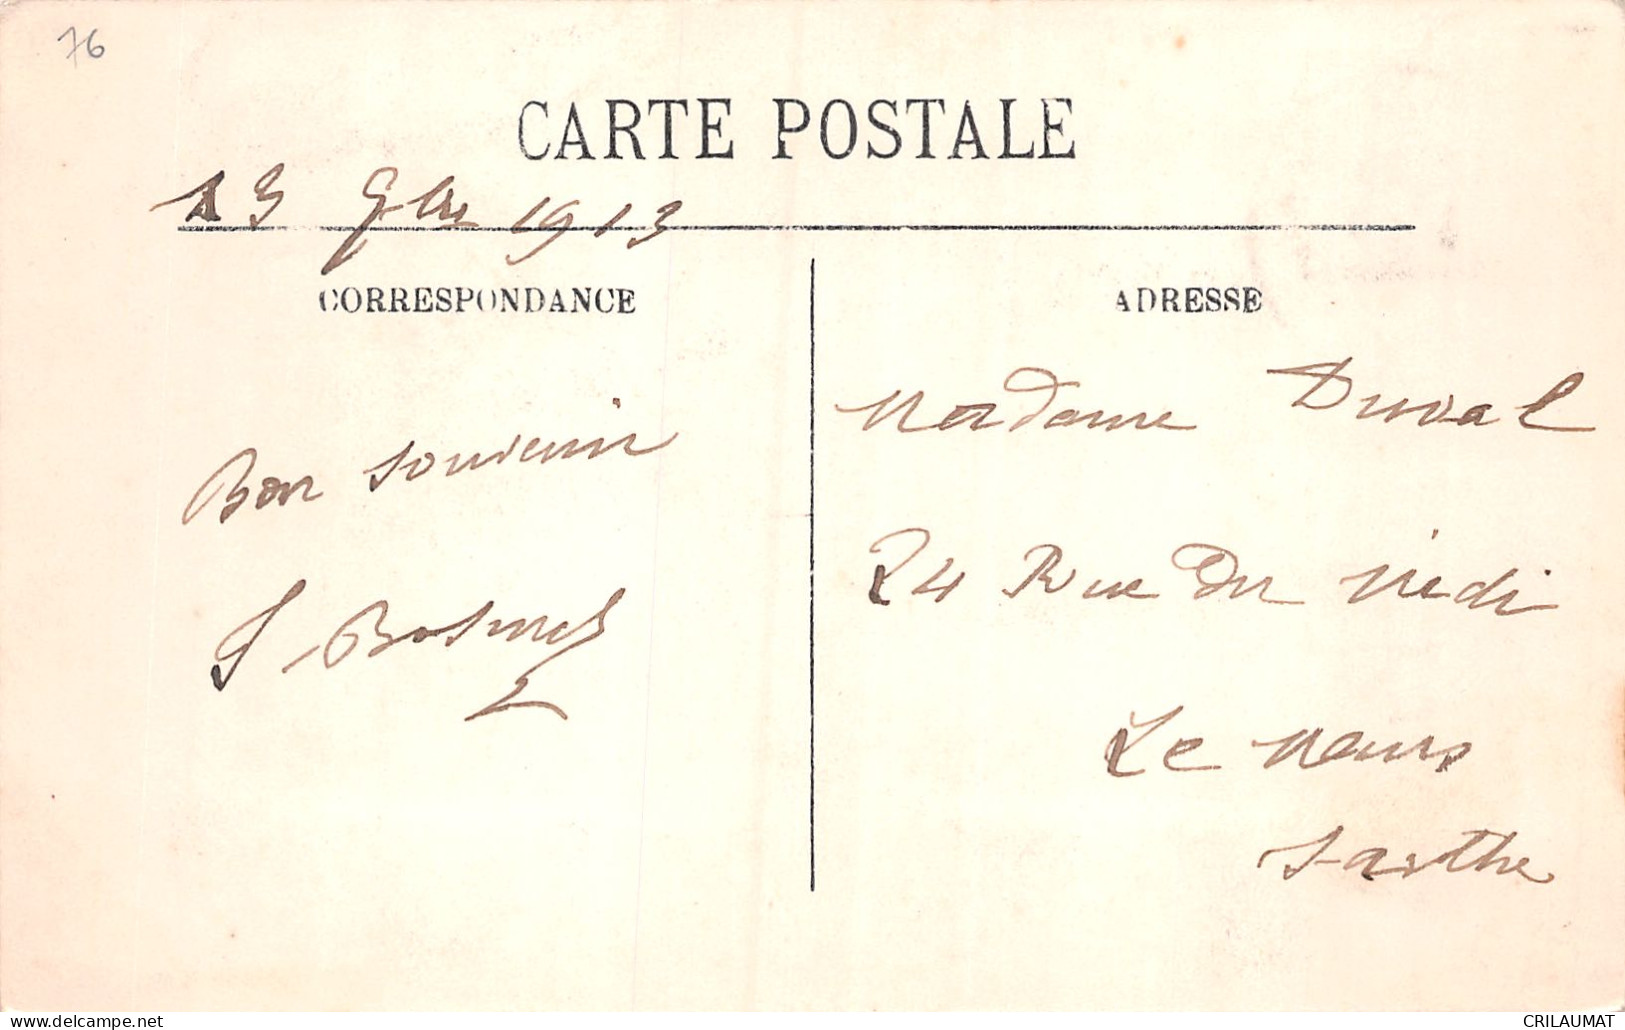 76
CARTE POSTALE
13 9bre 1913
CORRESPONDANCE
Bon souvenir
ADRESSE
Madame Duval
24 Rue Du
Le Mans
Sarthe
www.delcampe.net
CRILAUMAT